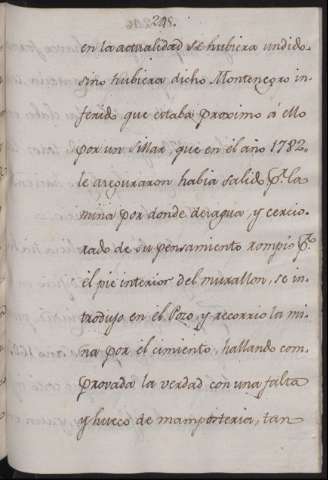 218.
en la actualidad se hubiera undido
sino hubiera dicho Montenegro in-
ferido que estaba proximo á ello
por un sillar, que en el año 1782
le aseguraron habia salido p.r la
mina por donde desagua, y cercio-
rado de su pensamiento rompio p.r
él pie interior del murallon, se in-
trodujo en el Pozo, y recorrio la mi-
na por él cimiento, hallando com-
provada la verdad con una falta
y hueco de mamposteria, tan